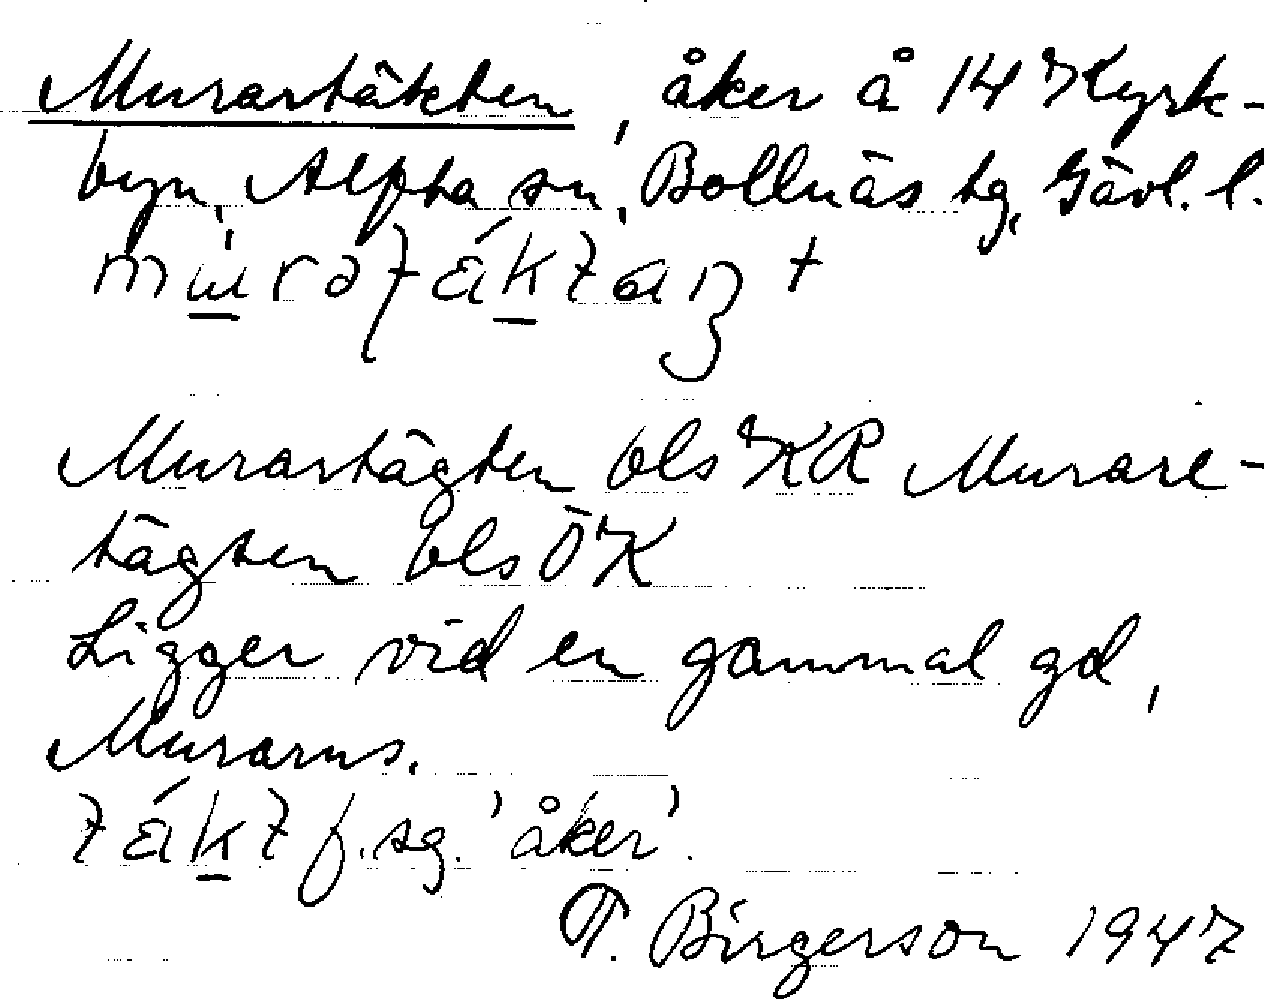 Murartäkten, åker å 14 Kyrk-
byn, Alfta sn, Bollnäs tg, Gävl. l.
Murartägten bls KR Murare-
tägten bls ÖK
Ligger vid en gammal gd,
Murarns.
f. sg. 'åker'.
T. Birgerson 1947